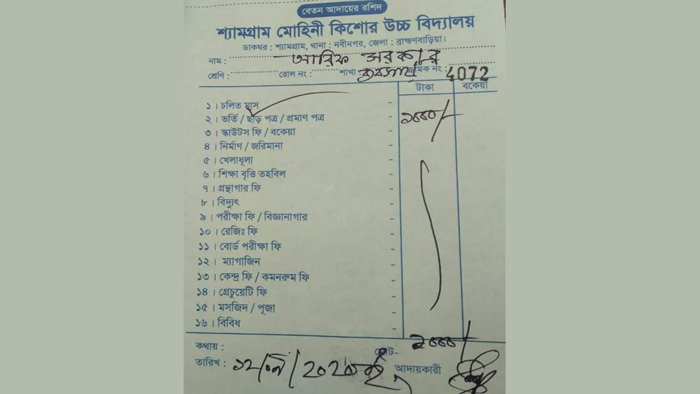 বেতন আদায়ের রশিদ
শ্যামগ্রাম মোহিনী কিশোর উচ্চ বিদ্যালয়
ডাকঘর : শ্যামগ্রাম, থানা : নবীনগর, জেলা : ব্রাহ্মণবাড়িয়া।
নাম : আরিফ সরকার
শ্রেণি : রোল নং : শাখা ক্রমিক নং : 4072
টাকা বকেয়া
১। চলিত মাস
২। ভর্তি / ছাড় পত্র / প্রমাণ পত্র
৩। স্কাউটস ফি / বকেয়া
৪। নির্মাণ / জরিমানা
৫। খেলাধূলা
৬। শিক্ষা বৃত্তি তহবিল
৭। গ্রন্থাগার ফি
৮। বিদ্যুৎ
৯। পরীক্ষা ফি / বিজ্ঞানাগার
১০। রেজিঃ ফি
১১। বোর্ড পরীক্ষা ফি
১২। ম্যাগাজিন
১৩। কেন্দ্র ফি / কমনরুম ফি
১৪। গ্রেচুয়েটি ফি
১৫। মসজিদ / পূজা
১৬। বিবিধ
কথায় :
তারিখ : আদায়কারী